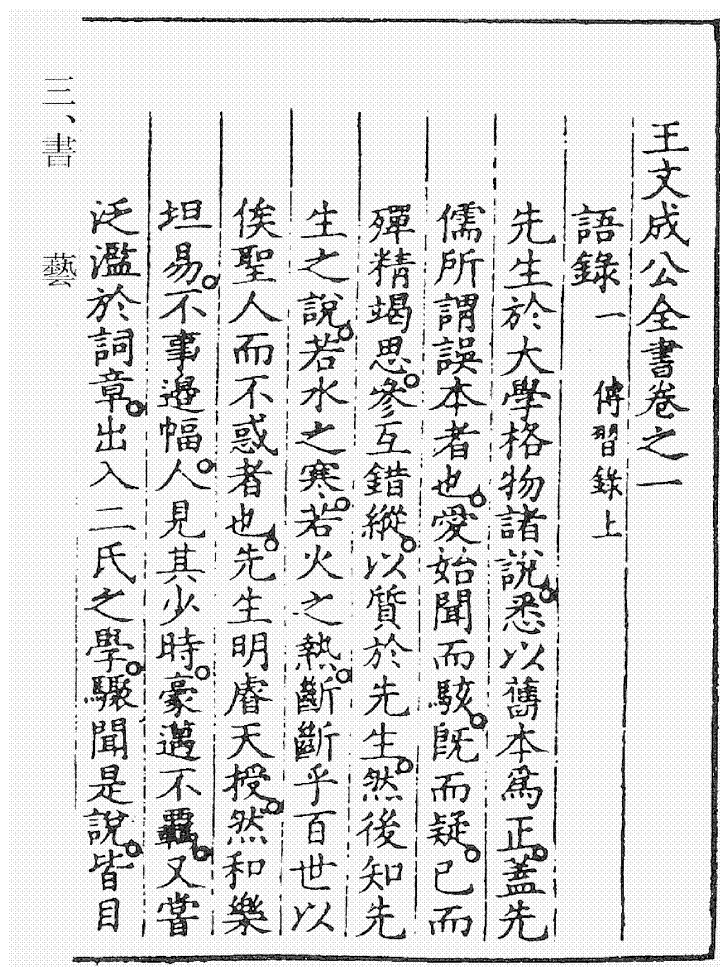 王文成公全書卷之一
語錄一 傳習錄上
先生於大學格物諸說。悉以舊本爲正。蓋先
儒所謂誤本者也。愛始聞而駭。旣而疑。已而
殫精竭思。參互錯縱。以質於先生。然後知先
生之說。若水之寒。若火之熱。斷斷乎百世以
俟聖人而不惑者也。先生明睿天授。然和樂
坦易。不事邊幅。人見其少時。豪邁不羈。又嘗
泛濫於詞章。出入二氏之學。驟聞是說。皆目
三、書藝